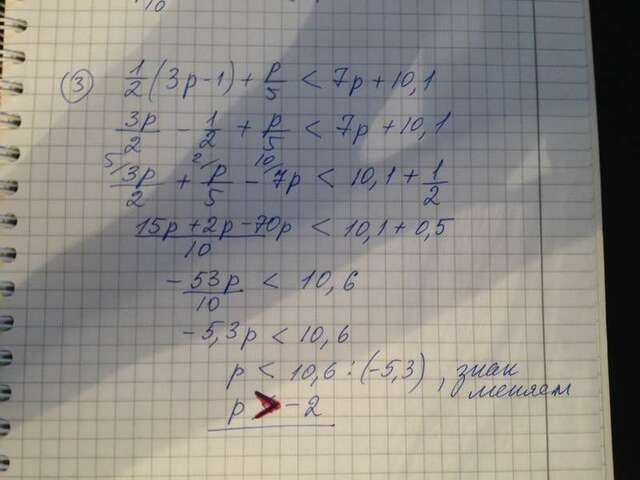 ③ 1/2 (3p-1) + p/5 < 7p + 10,1
3p/2 - 1/2 + p/5 < 7p + 10,1
5/ 3p/2 + 2/ p/5 - 10/ 7p < 10,1 + 1/2
15p + 2p - 70p / 10 < 10,1 + 0,5
- 53p/10 < 10,6
-5,3p < 10,6
p < 10,6 : (-5,3), знак меняем
p > -2